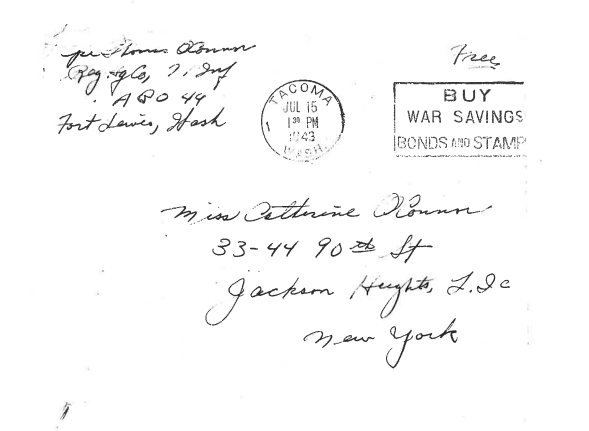 Pvt Thomas O'Connor
Reg. Hq Co, 7. Inf
APO 44
Fort Lewis, Wash
Free
TACOMA
JUL 15
1 30 PM
1943
WASH.
1
BUY
WAR SAVINGS
BONDS AND STAMP
Miss Catherine O'Connor
33-44 90th St
Jackson Heights, L.I.
New York